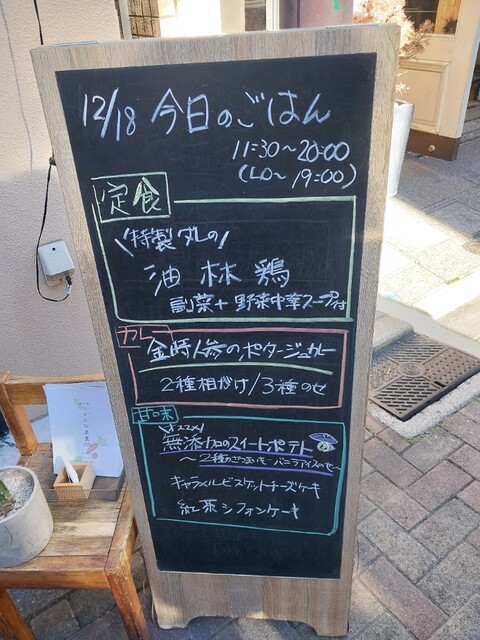 12/18 今日のごはん
11:30～20:00
(LO～19:00)
定食
特製ダレの
油林鶏
副菜+野菜中華スープ付
カレー
金時人参のポタージュカレー
2種相がけ/3種のせ
甘味
無添加のスイートポテト
～2種のさつまいも・バニラアイスのせ～
キャラメルビスケットチーズケーキ
紅茶シフォンケーキ